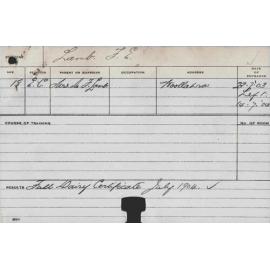 Lamb. F. E.
AGE PARENT OR GUARDIAN OCCUPATION ADDRESS DATE OF ENTRANCE
E.C. Lamb Woollahra
Left
COURSE OF TRAINING No. OF ROOM
RESULTS Full Dairy Certificate July 1904.